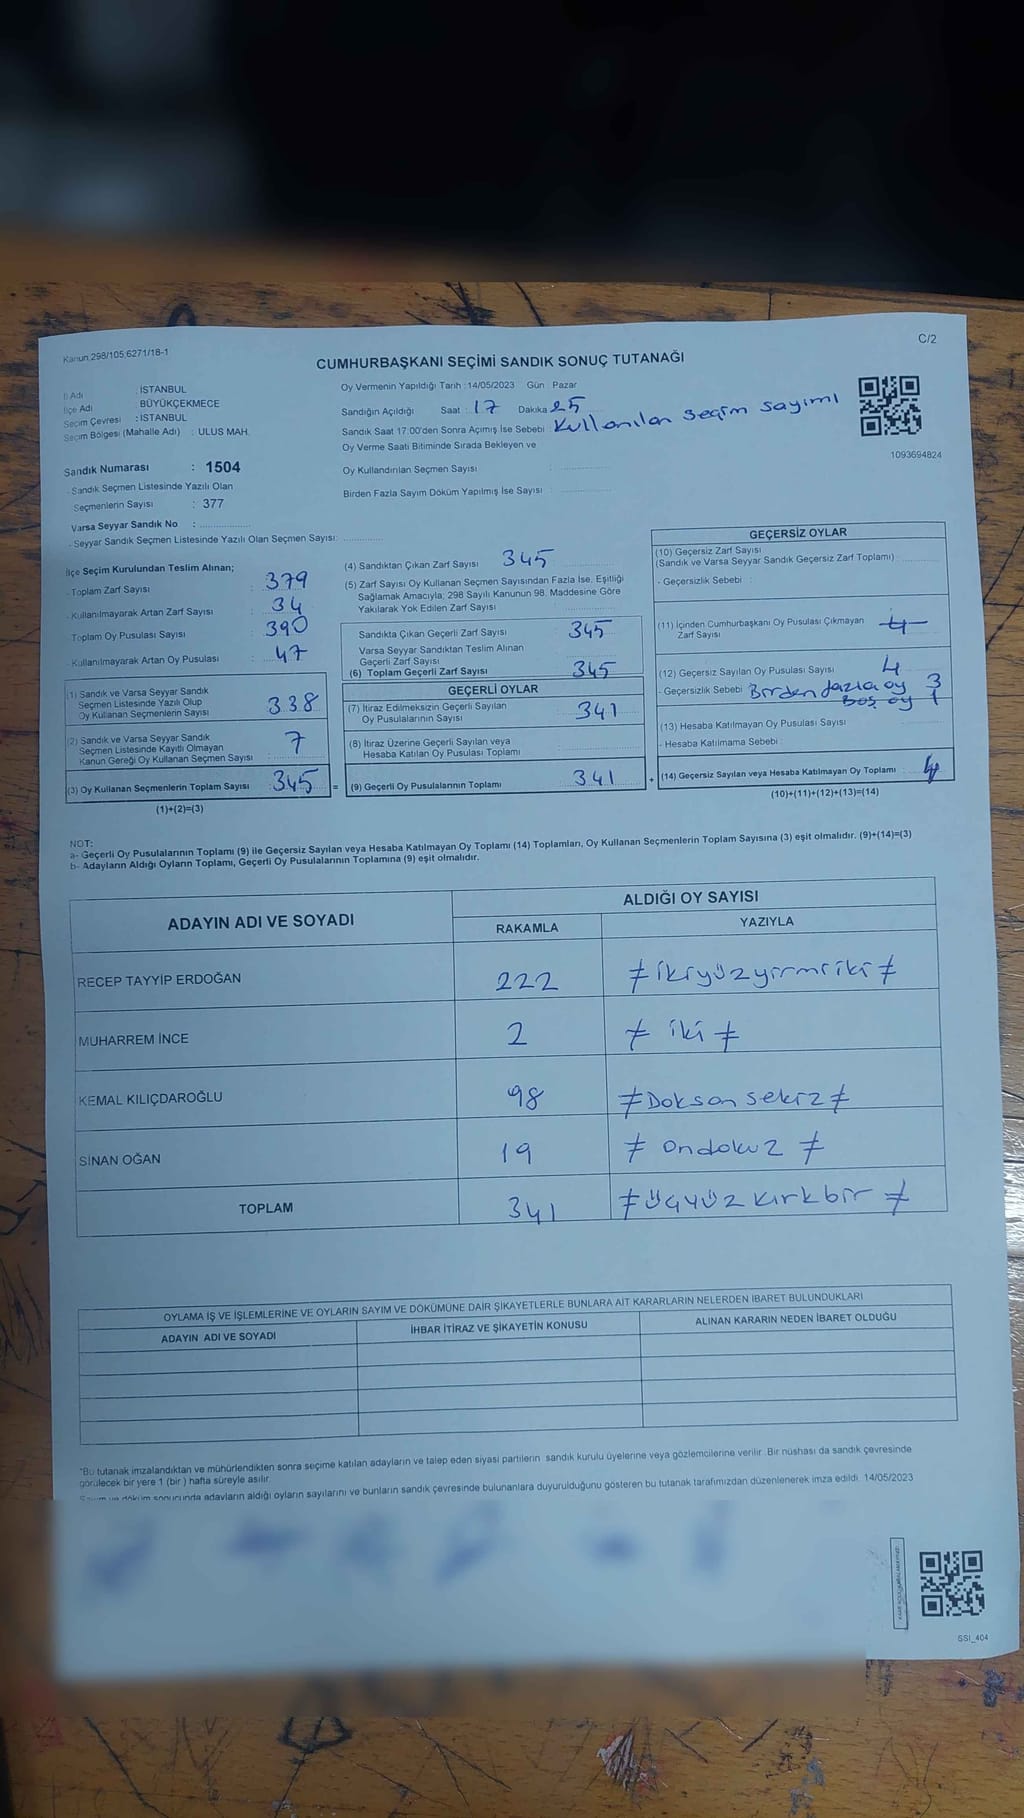 Kanun:298/105;6271/18-1
C/2
CUMHURBAŞKANI SEÇİMİ SANDIK SONUÇ TUTANAĞI
İl Adı : İSTANBUL
İlçe Adı : BÜYÜKÇEKMECE
Seçim Çevresi : İSTANBUL
Seçim Bölgesi (Mahalle Adı) : ULUS MAH.
Sandık Numarası : 1504
- Sandık Seçmen Listesinde Yazılı Olan
Seçmenlerin Sayısı : 377
Varsa Seyyar Sandık No :
- Seyyar Sandık Seçmen Listesinde Yazılı Olan Seçmen Sayısı:
Oy Vermenin Yapıldığı Tarih :14/05/2023 Gün : Pazar
Sandığın Açıldığı Saat : 17 Dakika 25
Sandık Saat 17:00'den Sonra Açımış İse Sebebi Kullanılan seçim sayımı
Oy Verme Saati Bitiminde Sırada Bekleyen ve
Oy Kullandırılan Seçmen Sayısı :
Birden Fazla Sayım Döküm Yapılmış İse Sayısı :
1093694824
İlçe Seçim Kurulundan Teslim Alınan;
- Toplam Zarf Sayısı : 379
- Kullanılmayarak Artan Zarf Sayısı : 34
Toplam Oy Pusulası Sayısı : 390
- Kullanılmayarak Artan Oy Pusulası : 47
(1) Sandık ve Varsa Seyyar Sandık
Seçmen Listesinde Yazılı Olup
Oy Kullanan Seçmenlerin Sayısı 338
(2) Sandık ve Varsa Seyyar Sandık
Seçmen Listesinde Kayıtlı Olmayan
Kanun Gereği Oy Kullanan Seçmen Sayısı 7
(3) Oy Kullanan Seçmenlerin Toplam Sayısı : 345 =
(1)+(2)=(3)
(4) Sandıktan Çıkan Zarf Sayısı : 345
(5) Zarf Sayısı Oy Kullanan Seçmen Sayısından Fazla İse, Eşitliği
Sağlamak Amacıyla; 298 Sayılı Kanunun 98. Maddesine Göre
Yakılarak Yok Edilen Zarf Sayısı
Sandıkta Çıkan Geçerli Zarf Sayısı : 345
Varsa Seyyar Sandıktan Teslim Alınan
Geçerli Zarf Sayısı
(6) Toplam Geçerli Zarf Sayısı : 345
GEÇERLİ OYLAR
(7) İtiraz Edilmeksizin Geçerli Sayılan
Oy Pusulalarının Sayısı 341
(8) İtiraz Üzerine Geçerli Sayılan veya
Hesaba Katılan Oy Pusulası Toplamı
(9) Geçerli Oy Pusulalarının Toplamı 341 +
GEÇERSİZ OYLAR
(10) Geçersiz Zarf Sayısı
(Sandık ve Varsa Seyyar Sandık Geçersiz Zarf Toplamı)
- Geçersizlik Sebebi :
(11) İçinden Cumhurbaşkanı Oy Pusulası Çıkmayan
Zarf Sayısı
(12) Geçersiz Sayılan Oy Pusulası Sayısı : 4
- Geçersizlik Sebebi Birden fazla oy 3
Boş oy 1
(13) Hesaba Katılmayan Oy Pusulası Sayısı
- Hesaba Katılmama Sebebi :
(14) Geçersiz Sayılan veya Hesaba Katılmayan Oy Toplamı : 4
(10)+(11)+(12)+(13)=(14)
NOT:
a- Geçerli Oy Pusulalarının Toplamı (9) ile Geçersiz Sayılan veya Hesaba Katılmayan Oy Toplamı (14) Toplamları, Oy Kullanan Seçmenlerin Toplam Sayısına (3) eşit olmalıdır. (9)+(14)=(3)
b- Adayların Aldığı Oyların Toplamı, Geçerli Oy Pusulalarının Toplamına (9) eşit olmalıdır.
ADAYIN ADI VE SOYADI
ALDIĞI OY SAYISI
RAKAMLA YAZIYLA
RECEP TAYYİP ERDOĞAN 222 ≠ ikiyüzyirmiiki ≠
MUHARREM İNCE 2 ≠ iki ≠
KEMAL KILIÇDAROĞLU 98 ≠ Doksan sekiz ≠
SİNAN OĞAN 19 ≠ ondokuz ≠
TOPLAM 341 ≠ üçyüz kırkbir ≠
OYLAMA İŞ VE İŞLEMLERİNE VE OYLARIN SAYIM VE DÖKÜMÜNE DAİR ŞİKAYETLERLE BUNLARA AİT KARARLARIN NELERDEN İBARET BULUNDUKLARI
ADAYIN ADI VE SOYADI İHBAR İTİRAZ VE ŞİKAYETİN KONUSU ALINAN KARARIN NEDEN İBARET OLDUĞU
*Bu tutanak imzalandıktan ve mühürlendikten sonra seçime katılan adayların ve talep eden siyasi partilerin sandık kurulu üyelerine veya gözlemcilerine verilir. Bir nüshası da sandık çevresinde
görülecek bir yere 1 (bir ) hafta süreyle asılır.
Sayım ve döküm sonucunda adayların aldığı oyların sayılarını ve bunların sandık çevresinde bulunanlara duyurulduğunu gösteren bu tutanak tarafımızdan düzenlenerek imza edildi. 14/05/2023
SSI_404